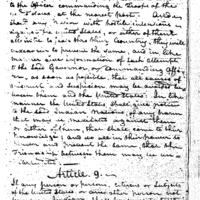 to the Officer commanding the troops of the
at the nearest post. And
shall any with hostile intentions
against the United States, or either of them
they will
endeavor to prevent the same, and in like
manner give information of such attempt
to the said Governor, or Commanding Offi-
cer, as soon as possible, that all causes of
and suspicion may be avoided be-
tween them and the United States: In like
manner the United States shall give notice
to the said Indian nations, of any harm
that may be meditated against them,
or either of them, that shall come to their
knowledge; and do all in their power to
hinder and prevent the same, that the
friendship between them may be un-
interrupted.
Article 9.
If any person or persons, citizens or subjects
of the United States, or any other person